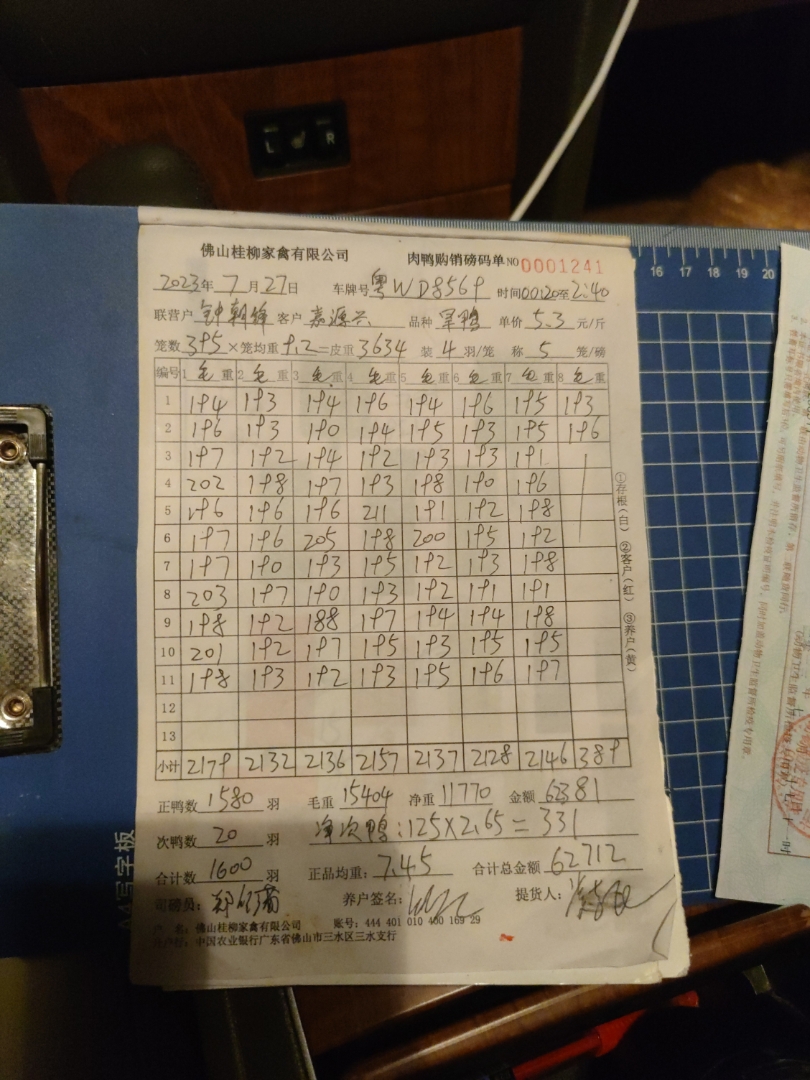 L R
佛山桂柳家禽有限公司 肉鸭购销磅码单 NO 0001241
2023年 7月27日 车牌号 粤WD8569 时间00:20至2:40
联营户 钟朝锋 客户 嘉源兴 品种 单价 5.3 元/斤
笼数 395 ×笼均重 9.2 =皮重 3634 装 4 羽/笼 称 5 笼/磅
编号 1 毛重 2 毛重 3 毛重 4 毛重 5 毛重 6 毛重 7 毛重 8 毛重
1 194 193 194 196 194 196 195 193
2 196 193 190 194 195 193 195 196
3 197 192 194 192 193 193 191
4 202 198 197 193 198 190 196
5 196 196 196 211 191 192 198
6 197 196 205 198 200 195 192
7 197 190 193 195 192 193 198
8 203 197 190 193 192 191 191
9 198 192 188 197 194 194 198
10 201 192 197 195 193 195 195
11 198 193 192 193 195 196 197
12
13
小计 2179 2132 2136 2157 2137 2128 2146 389
正鸭数 1580 羽 毛重 15404 净重 11770 金额 62381
次鸭数 20 羽 净次鸭:125×2.65=331
合计数 1600 羽 正品均重: 7.45 合计总金额 62712
司磅员: 养户签名: 提货人:
户 名: 佛山桂柳家禽有限公司 账号: 444 401 010 400 169 29
开户行: 中国农业银行广东省佛山市三水区三水支行
①存根(白) ②客户(红) ③养户(黄)
A4写字板
16 17 18 19 20